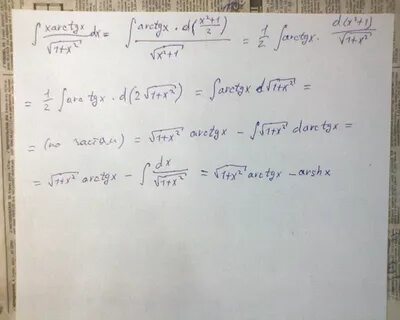 ∫ xarctgx/√(1+x²) dx = ∫ arctgx · d((x²+1)/2)/√(x²+1) = 1/2 ∫ arctgx · d(x²+1)/√(1+x²)
= 1/2 ∫ arctgx · d(2√(1+x²)) = ∫ arctgx d√(1+x²) =
= (по частям) = √(1+x²) arctgx − ∫ √(1+x²) darctgx =
= √(1+x²) arctgx − ∫ dx/√(1+x²) = √(1+x²) arctgx − arshx